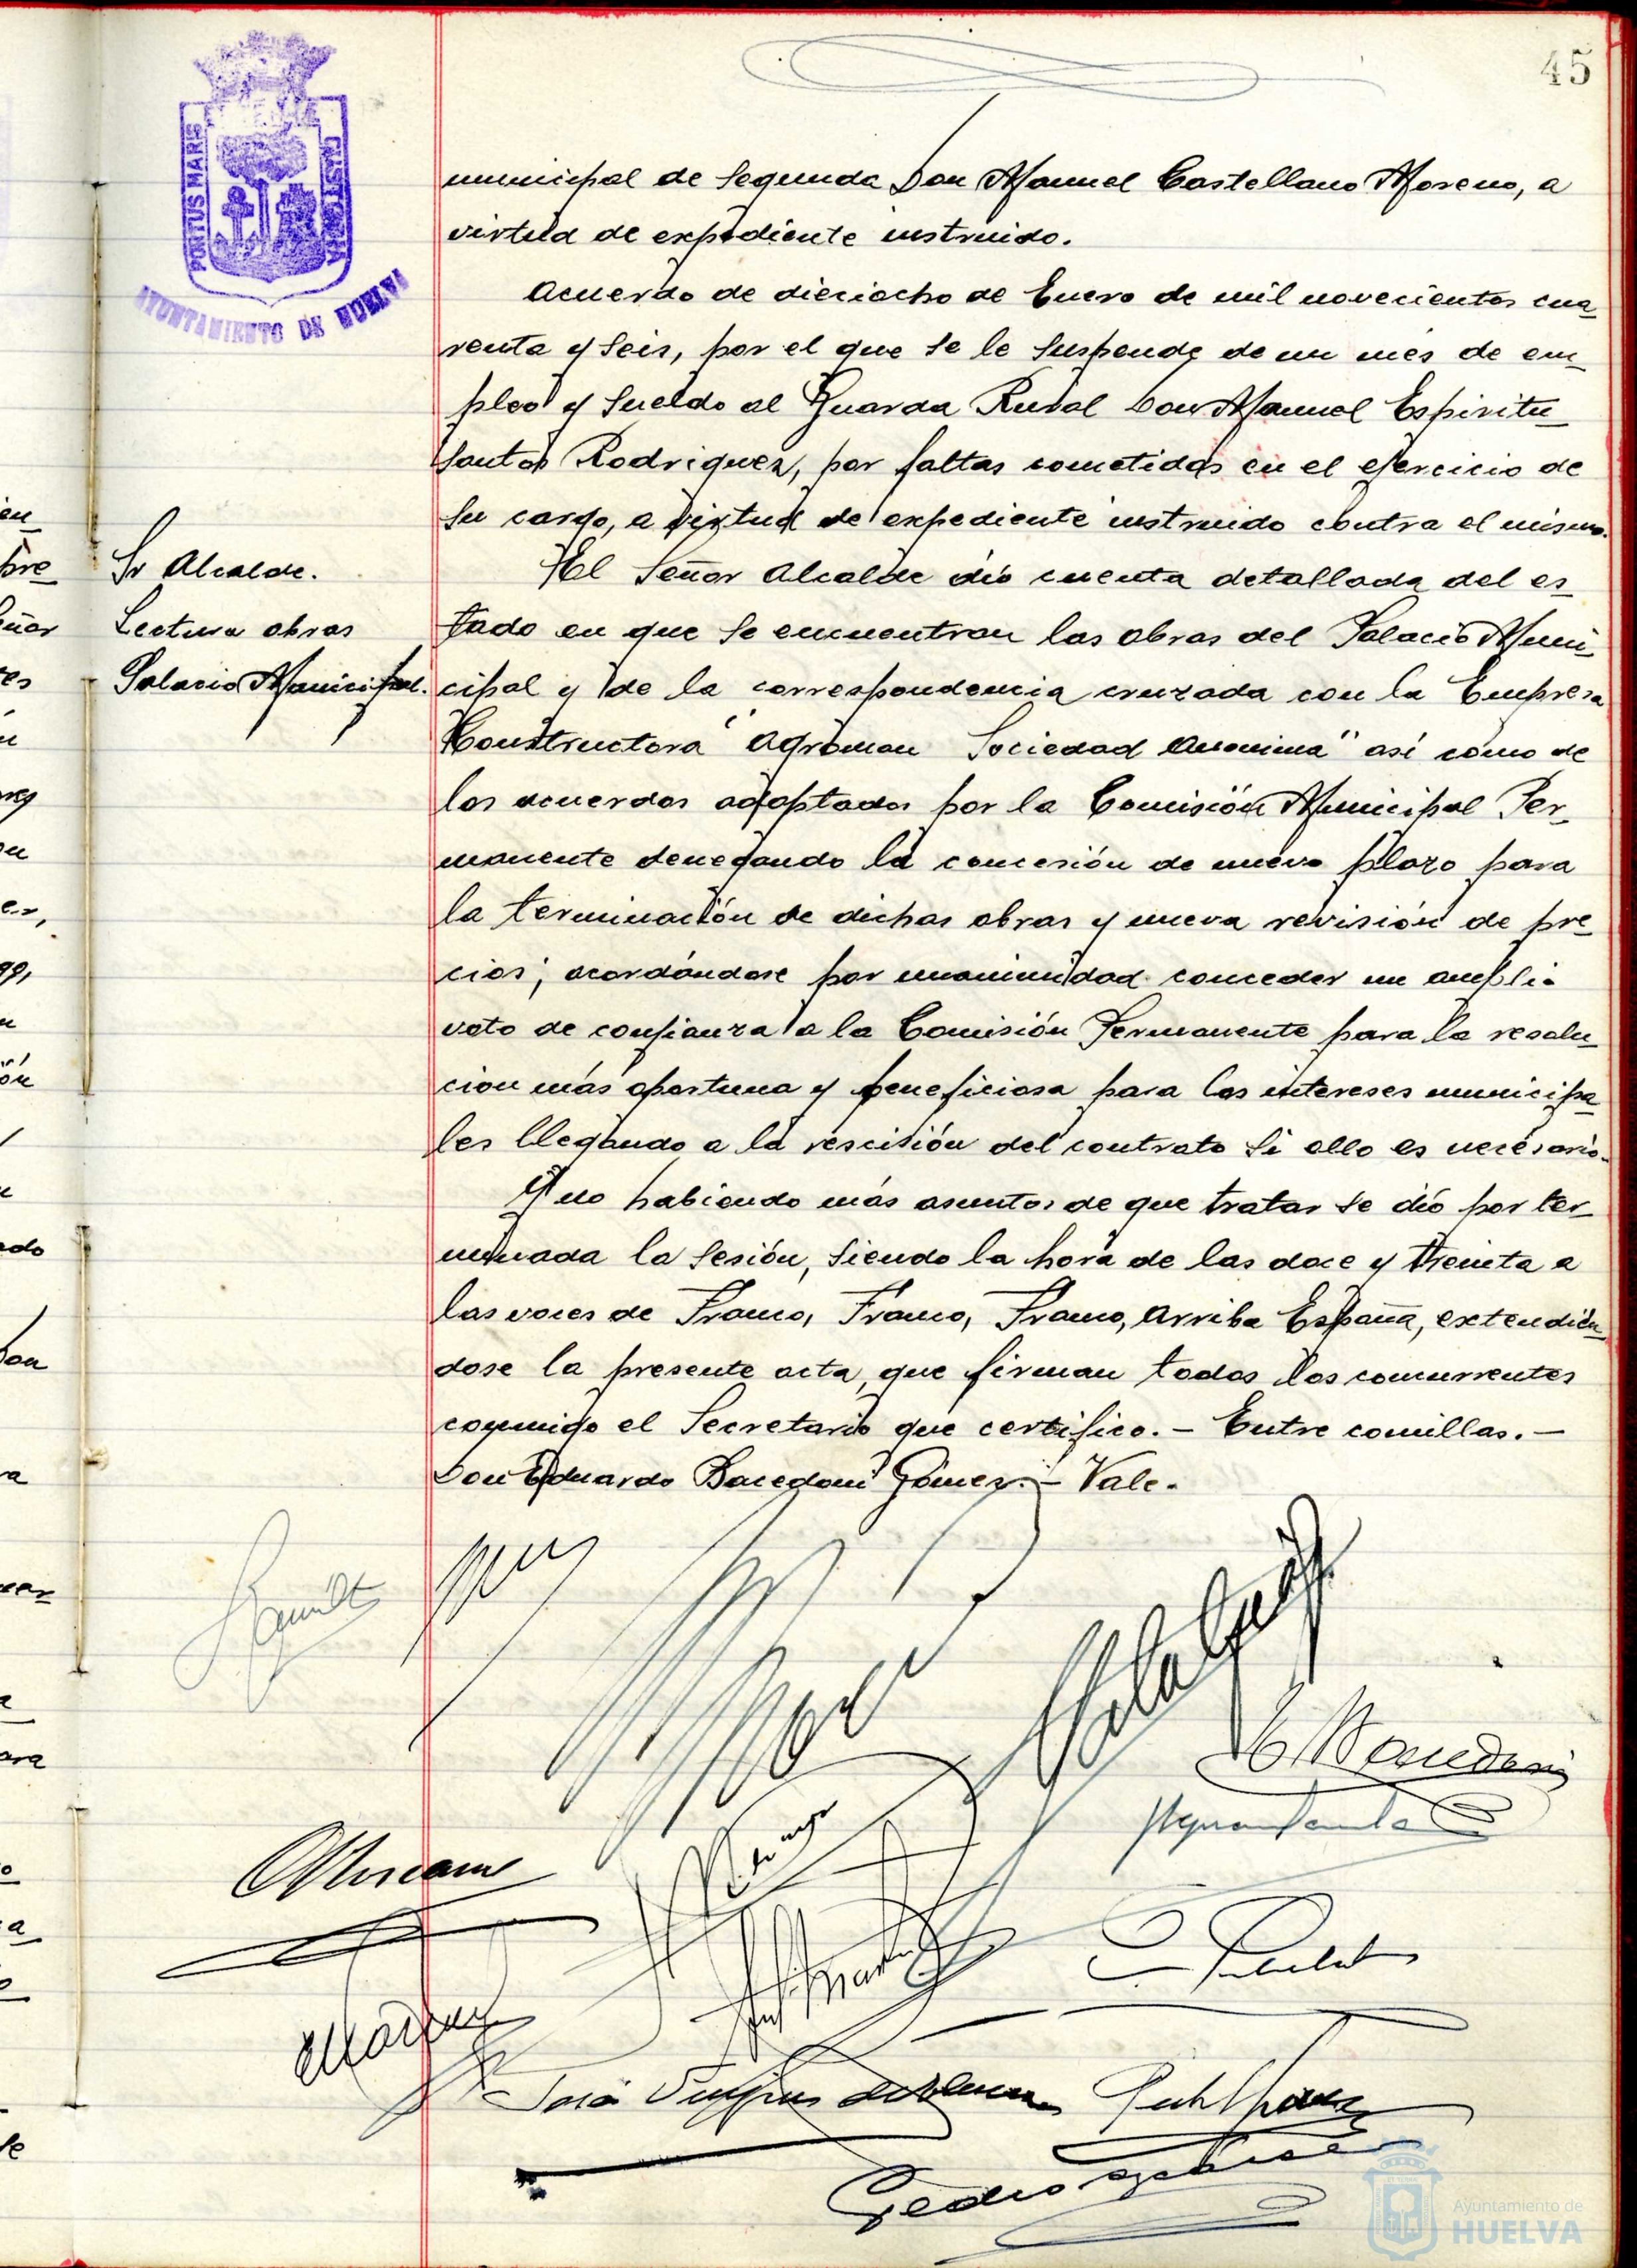 45
PORTUS MARIS
CUSTODIA
AYUNTAMIENTO DE HUELVA
municipal de Segunda Don Manuel Castellano Moreno, a
virtud de expediente instruido.
Acuerdo de dieciocho de Enero de mil novecientos cua
renta y Seis, por el que se le Suspende de un mes de em
pleo y Sueldo al Guarda Rural Don Manuel Espiritu
Santo Rodriguez, por faltas cometidas en el ejercicio de
Su cargo, a virtud de expediente instruido contra el mismo.
Sr Alcalde.
Lectura obras
Palacio Municipal.
El Señor Alcalde dió cuenta detallada del es
tado en que se encuentran las obras del Palacio Muni
cipal y de la correspondencia cruzada con la Empresa
Constructora "Agroman Sociedad Anonima" así como de
los acuerdos adoptados por la Comisión Municipal Per
manente denegando la concesión de nuevo plazo para
la terminación de dichas obras y nueva revisión de pre
cios; acordándose por unanimidad conceder un amplio
voto de confianza a la Comisión Permanente para la resolu
cion más oportuna y beneficiosa para los intereses municipa
les llegando a la rescisión del contrato Si ello es necesario.
Y no habiendo más asuntos de que tratar se dió por ter
minada la Sesión, Siendo la hora de las doce y treinta a
las voces de Franco, Franco, Franco, Arriba España, extendién
dose la presente acta, que firman todos los concurrentes
conmigo el Secretario que certifico. - Entre comillas. -
Don Eduardo Bacedoni Gómez. - Vale.
Ayuntamiento de
HUELVA